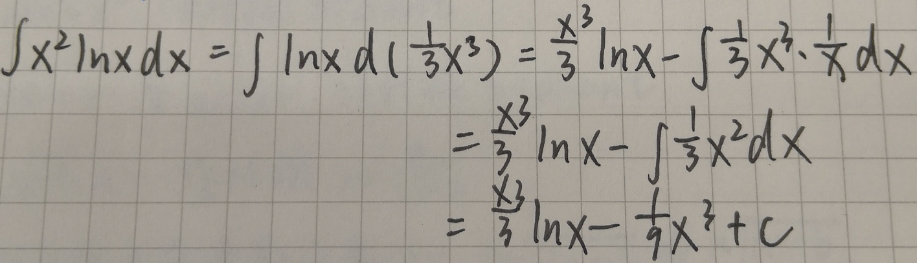 ∫x² lnx dx = ∫ lnx d(1/3 x³) = x³/3 lnx - ∫ 1/3 x³ · 1/x dx
= x³/3 lnx - ∫ 1/3 x² dx
= x³/3 lnx - 1/9 x³ + C